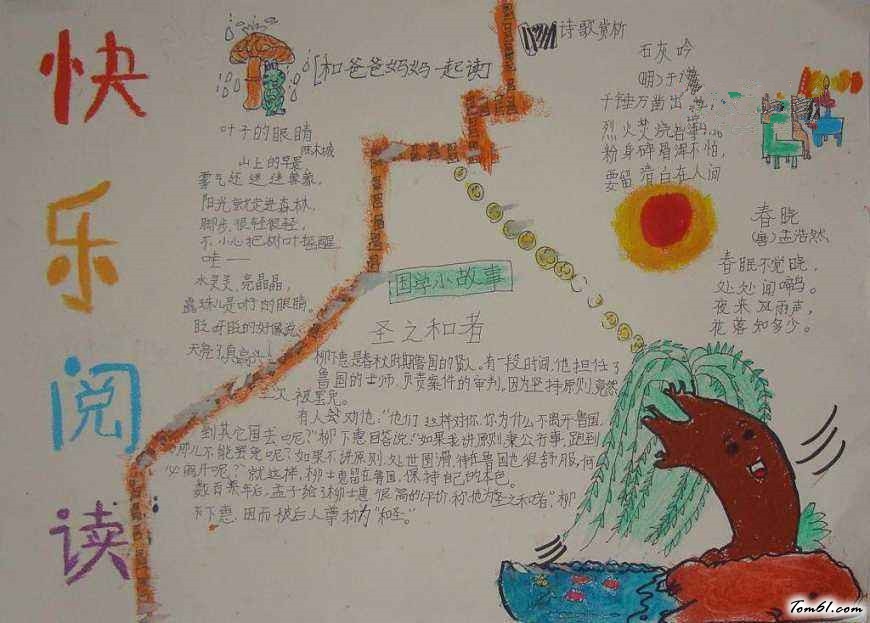 快乐阅读
[和爸爸妈妈一起读]
叶子的眼睛
山上的早晨
雾气还迷迷蒙蒙,
阳光就走进森林,
脚步很轻很轻,
不小心把树叶摇醒
哇——
水灵灵,亮晶晶,
露珠儿是叶的眼睛,
诗歌赏析
石灰吟
(明)于
千锤万凿出
烈火焚烧
粉身碎骨浑不怕,
要留清白在人间
春晓
(唐)孟浩然
春眠不觉晓,
处处闻啼鸟。
夜来风雨声,
花落知多少。
国学小故事
圣之和者
柳下惠是春秋时期鲁国的贤人。有一段时间,他担任了
鲁国的士师,负责案件的审判,因为坚持原则,竟然
三次被罢免。
有人会劝他,“他们这样对你,你为什么不离开鲁国,
到其它国去呢?”柳下惠回答说:“如果我讲原则秉公行事,跑到
哪儿不能罢免呢?如果不讲原则,处世圆滑,待在鲁国也很舒服,何
必离开呢?”就这样,柳士惠留在鲁国,保持自己的本色。
数百余年后,孟子给了柳士惠很高的评价,称他为“圣之和者”柳
下惠,因而被后人尊称为“和圣。”
Tom61.com